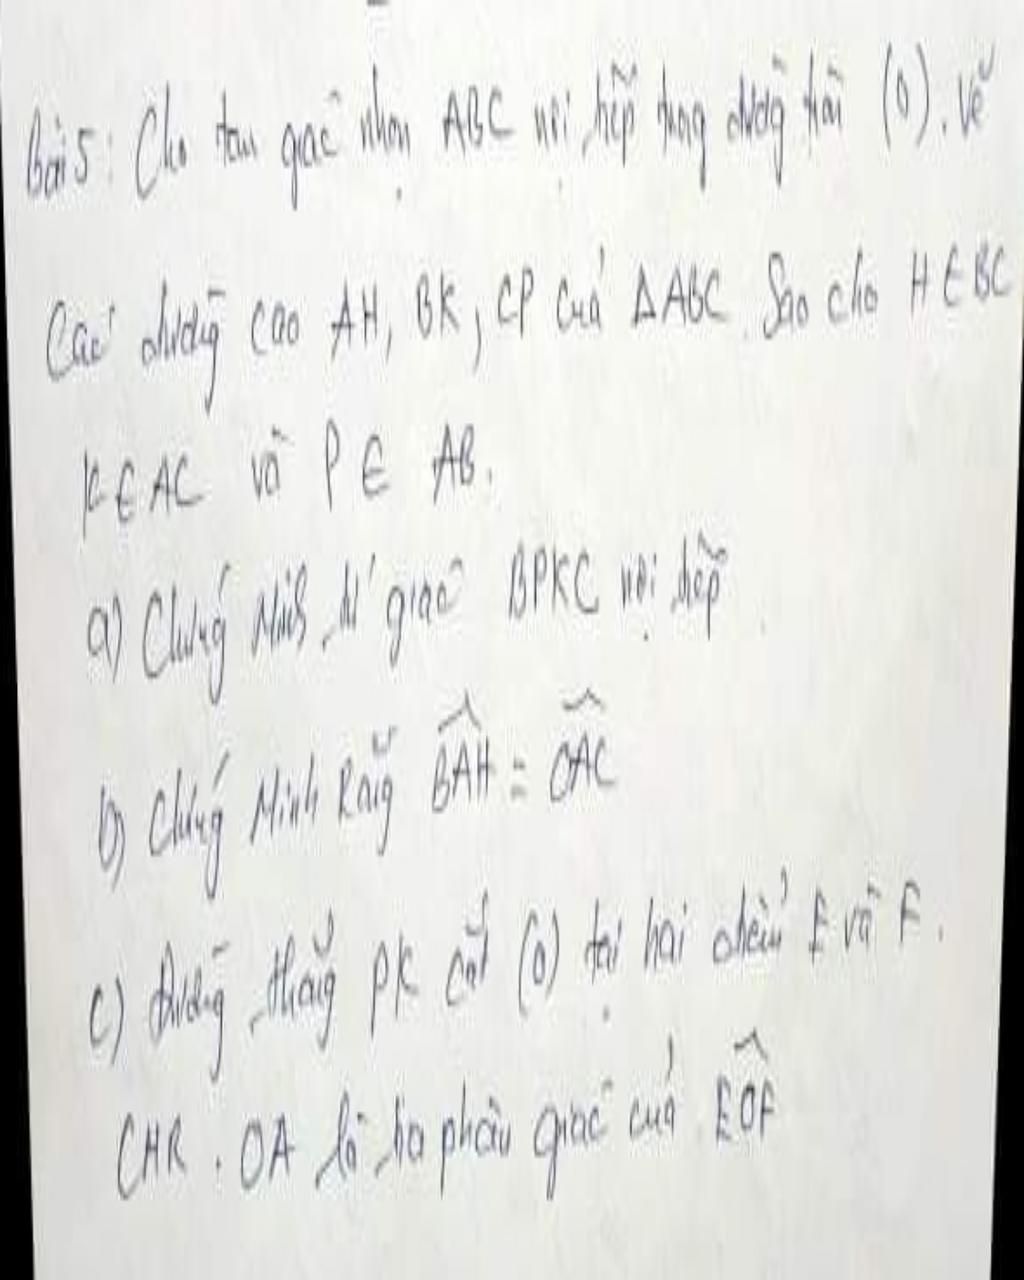 Bài 5: Cho tam giác nhọn ABC nội tiếp trong đường tròn (O). Vẽ
Các đường cao AH, BK, CP của ΔABC. Sao cho H ∈ BC
K ∈ AC và P ∈ AB.
a) Chứng Minh tứ giác BPKC nội tiếp.
b) Chứng Minh Rằng \widehat{BAH} = \widehat{OAC}
c) Đường thẳng PK cắt (O) tại hai điểm E và F.
CMR. OA là tia phân giác của \widehat{EOF}